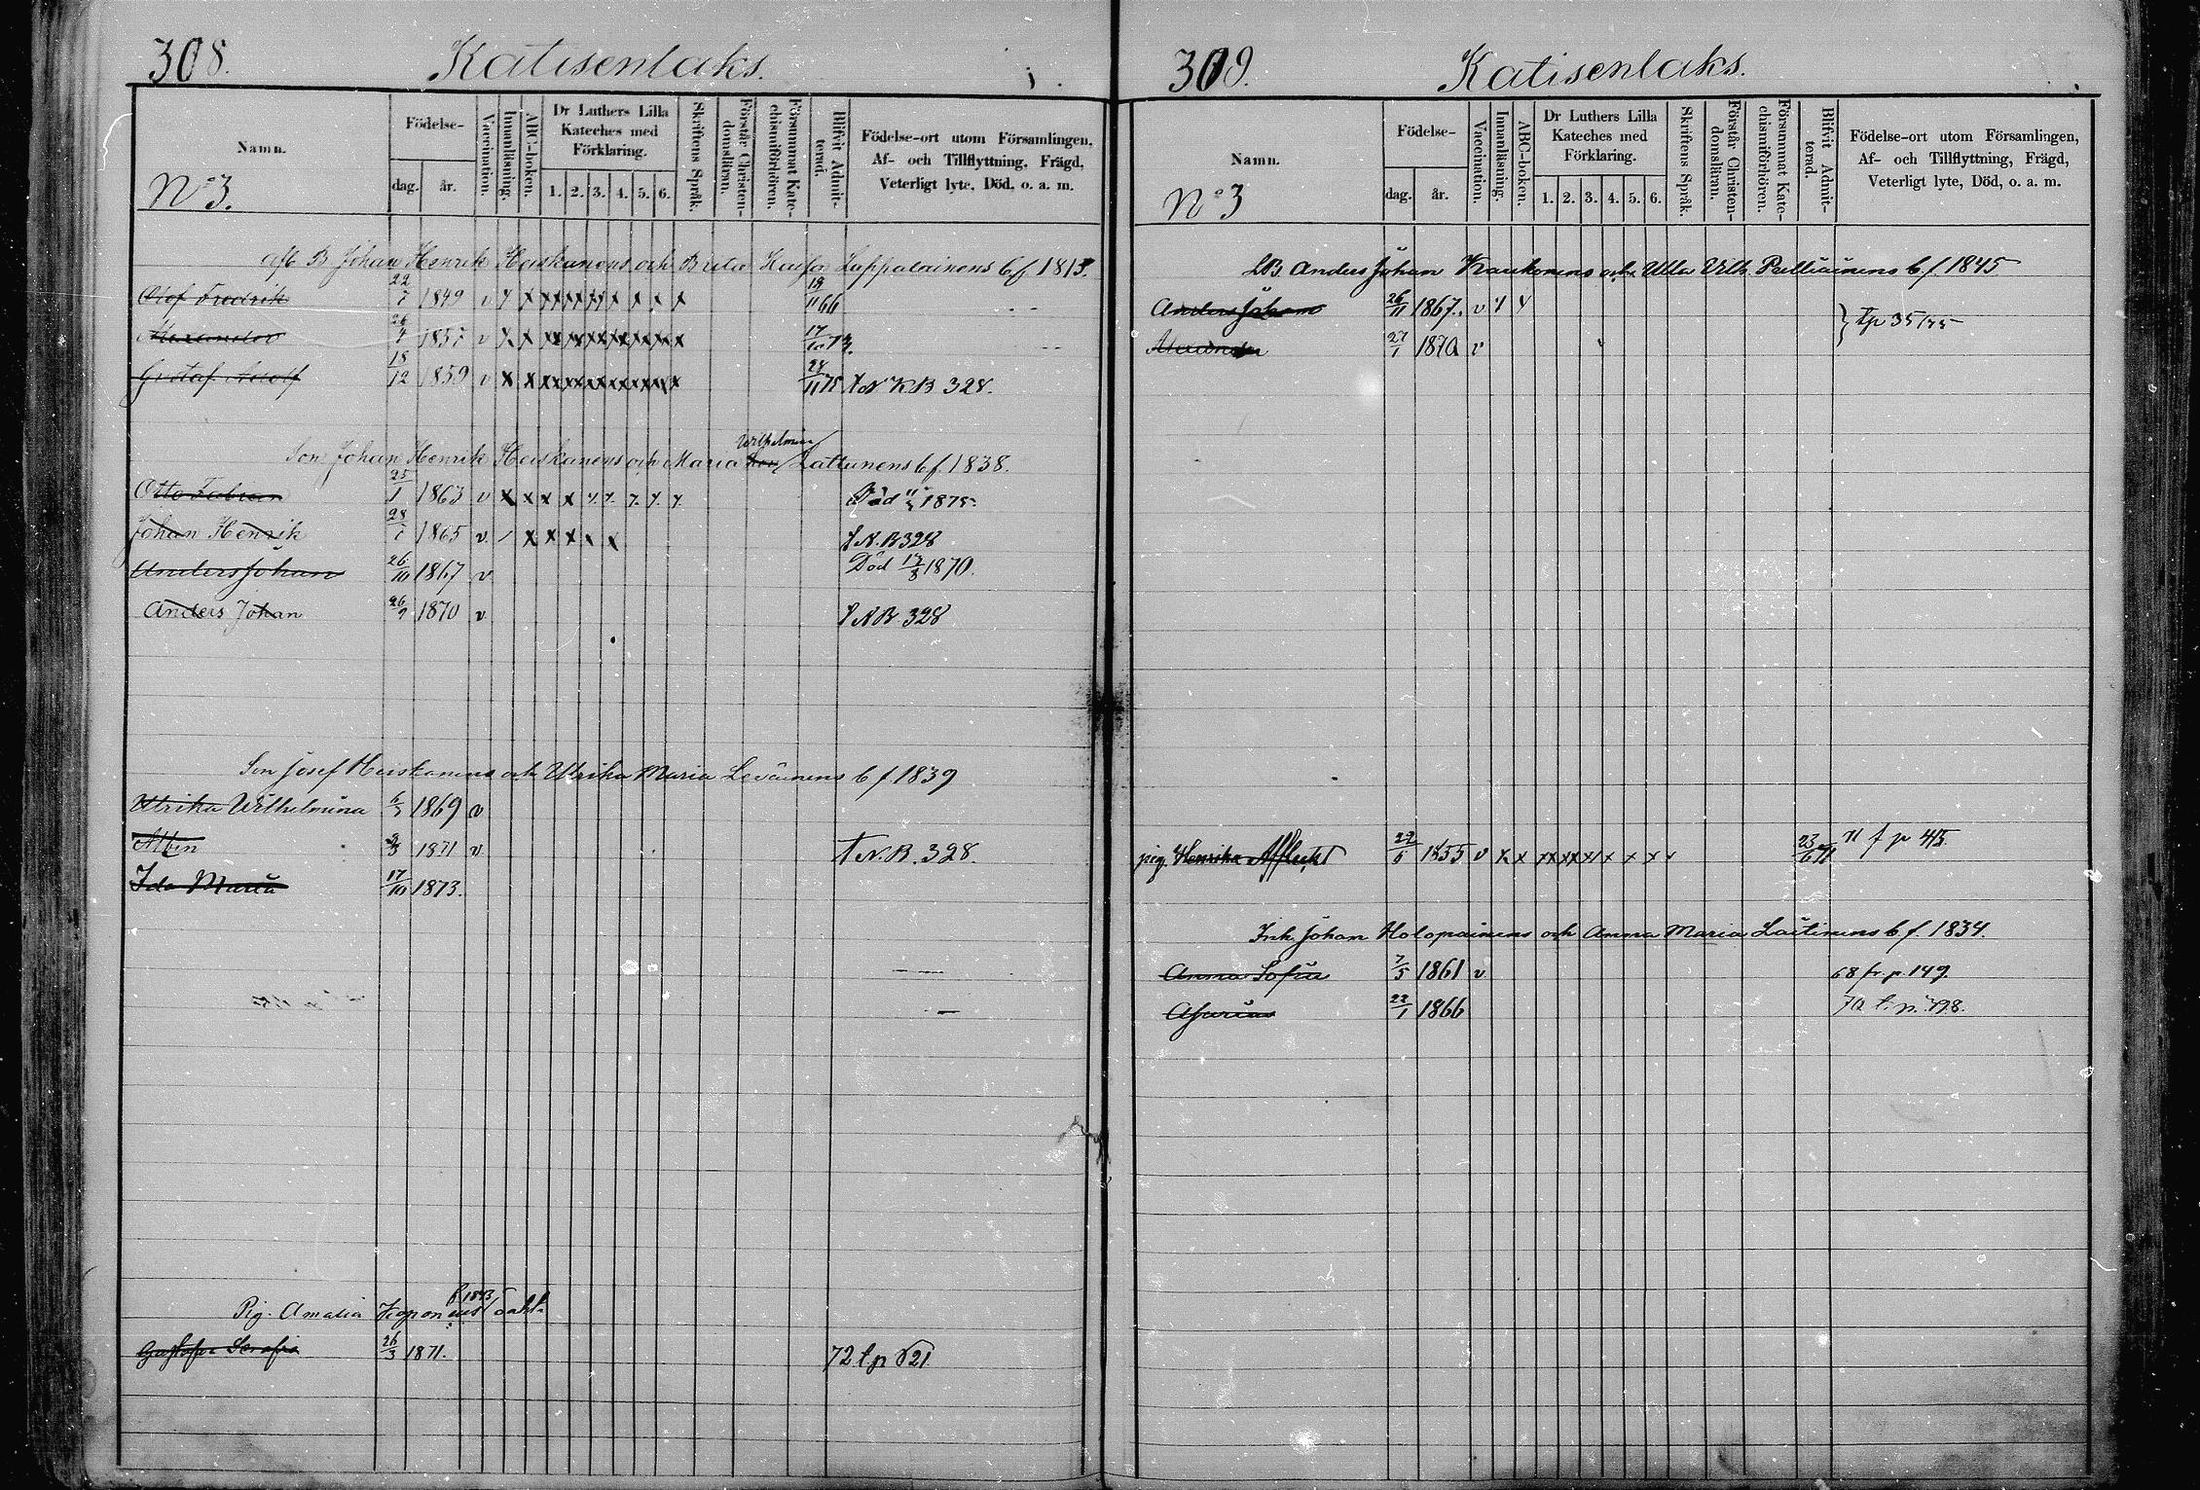 308.
Katisenlaks.
Namn.
No 3.
Födelse-
dag. år.
Vaccination.
Innanläsning.
ABC-boken.
Dr Luthers Lilla Kateches med Förklaring.
1. 2. 3. 4. 5. 6.
Skriftens Språk.
Förstår Christendomsläran.
Försummat Katechismiförhören.
Blifvit Admitterad.
Födelse-ort utom Församlingen, Af- och Tillflyttning, Frägd, Veterligt lyte, Död, o. a. m.
B Johan Henrik Heiskanens och Brita Kaisa Lappalainens b f. 1813.
Olof Fredrik 22/7 1849 v 66
Alexander 26/4 1857 v 17/10
Gustaf Adolf 18/12 1859 v 28/11 75 N KB 328.
Son Johan Henrik Heiskanens och Maria Wilhelmina Lattunens b f. 1838.
Otto Fabian 25/1 1863 v Död 1875
Johan Henrik 28/7 1865 v N.B 328
Anders Johan 26/10 1867 v Död 1870.
Anders Johan 26/9 1870 v N B 328
Son Josef Heiskanens och Ulrika Maria Levänens b f 1839
Ulrika Wilhelmina 6/3 1869 v
Albin 1871 v N.B. 328.
Ida Maria 17/10 1873.
Pig. Amalia f 1843
Gustafva Serafia 26/3 1871. 72 t p 521
309.
Katisenlaks.
Namn.
No 3
Födelse-
dag. år.
Vaccination.
Innanläsning.
ABC-boken.
Dr Luthers Lilla Kateches med Förklaring.
1. 2. 3. 4. 5. 6.
Skriftens Språk.
Förstår Christendomsläran.
Försummat Katechismiförhören.
Blifvit Admitterad.
Födelse-ort utom Församlingen, Af- och Tillflyttning, Frägd, Veterligt lyte, Död, o. a. m.
LB Anders Johan Kaukonens och Ulla Vilh. b f 1845
Anders Johan 26/11 1867. v
Alexander 27/1 1870 v
pig. Henrika 1855 v 23/6 71 71 f p 413.
Inh. Johan Holopainens och Anna Maria Laitinens b f. 1834.
Anna Sofia 7/5 1861 v 68 fr. p. 149.
Asarias 22/1 1866 70 t. p. 498.